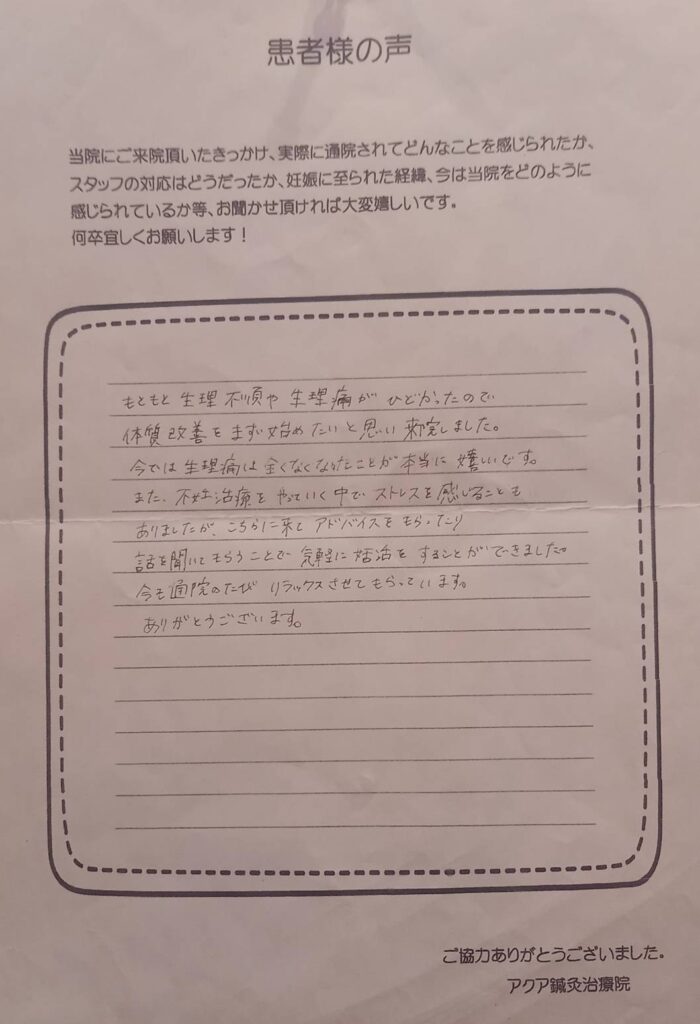 患者様の声
当院にご来院頂いたきっかけ、実際に通院されてどんなことを感じられたか、
スタッフの対応はどうだったか、妊娠に至られた経緯、今は当院をどのように
感じられているか等、お聞かせ頂ければ大変嬉しいです。
何卒宜しくお願いします！
もともと生理不順や生理痛がひどかったので
体質改善をまず始めたいと思い来院しました。
今では生理痛は全くなくなったことが本当に嬉しいです。
また、不妊治療をやっていく中でストレスを感じることも
ありましたが、こちらに来てアドバイスをもらったり
話を聞いてもらうことで気軽に妊活をすることができました。
今も通院のたびリラックスさせてもらっています。
ありがとうございます。
ご協力ありがとうございました。
アクア鍼灸治療院